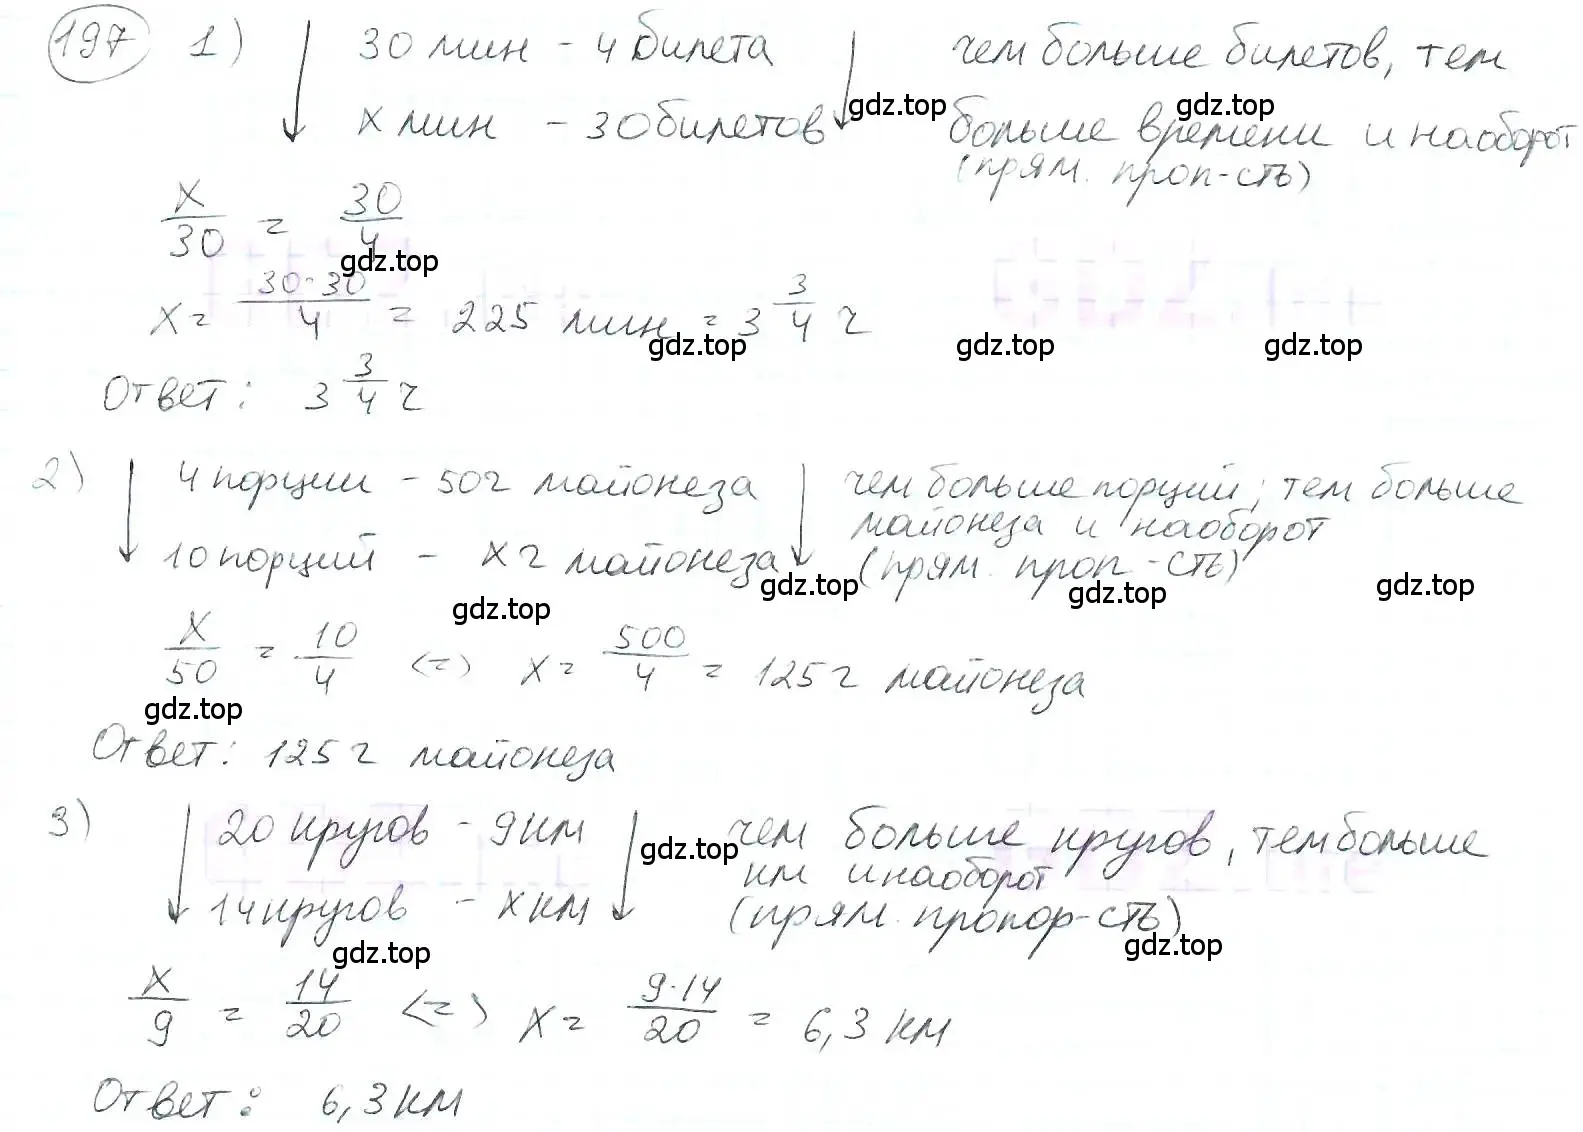 197 1) 30 мин - 4 билета чем больше билетов, тем
x мин - 30 билетов больше времени и наоборот
(прям. проп-сть)
x/30 = 30/4
x = 30·30/4 = 225 мин = 3 3/4 ч
Ответ: 3 3/4 ч
2) 4 порции - 50 г майонеза чем больше порций, тем больше
майонеза и наоборот
10 порций - x г майонеза (прям. проп-сть)
x/50 = 10/4 <=> x = 500/4 = 125 г майонеза
Ответ: 125 г майонеза
3) 20 кругов - 9 км чем больше кругов, тем больше
км и наоборот
14 кругов - x км (прям. пропор-сть)
x/9 = 14/20 <=> x = 9·14/20 = 6,3 км
Ответ: 6,3 км
gdz.top
gdz.top
gdz.top
gdz.top
gdz.top
gdz.top
gdz.top
gdz.top
gdz.top
gdz.top
gdz.top
gdz.top
gdz.top
gdz.top